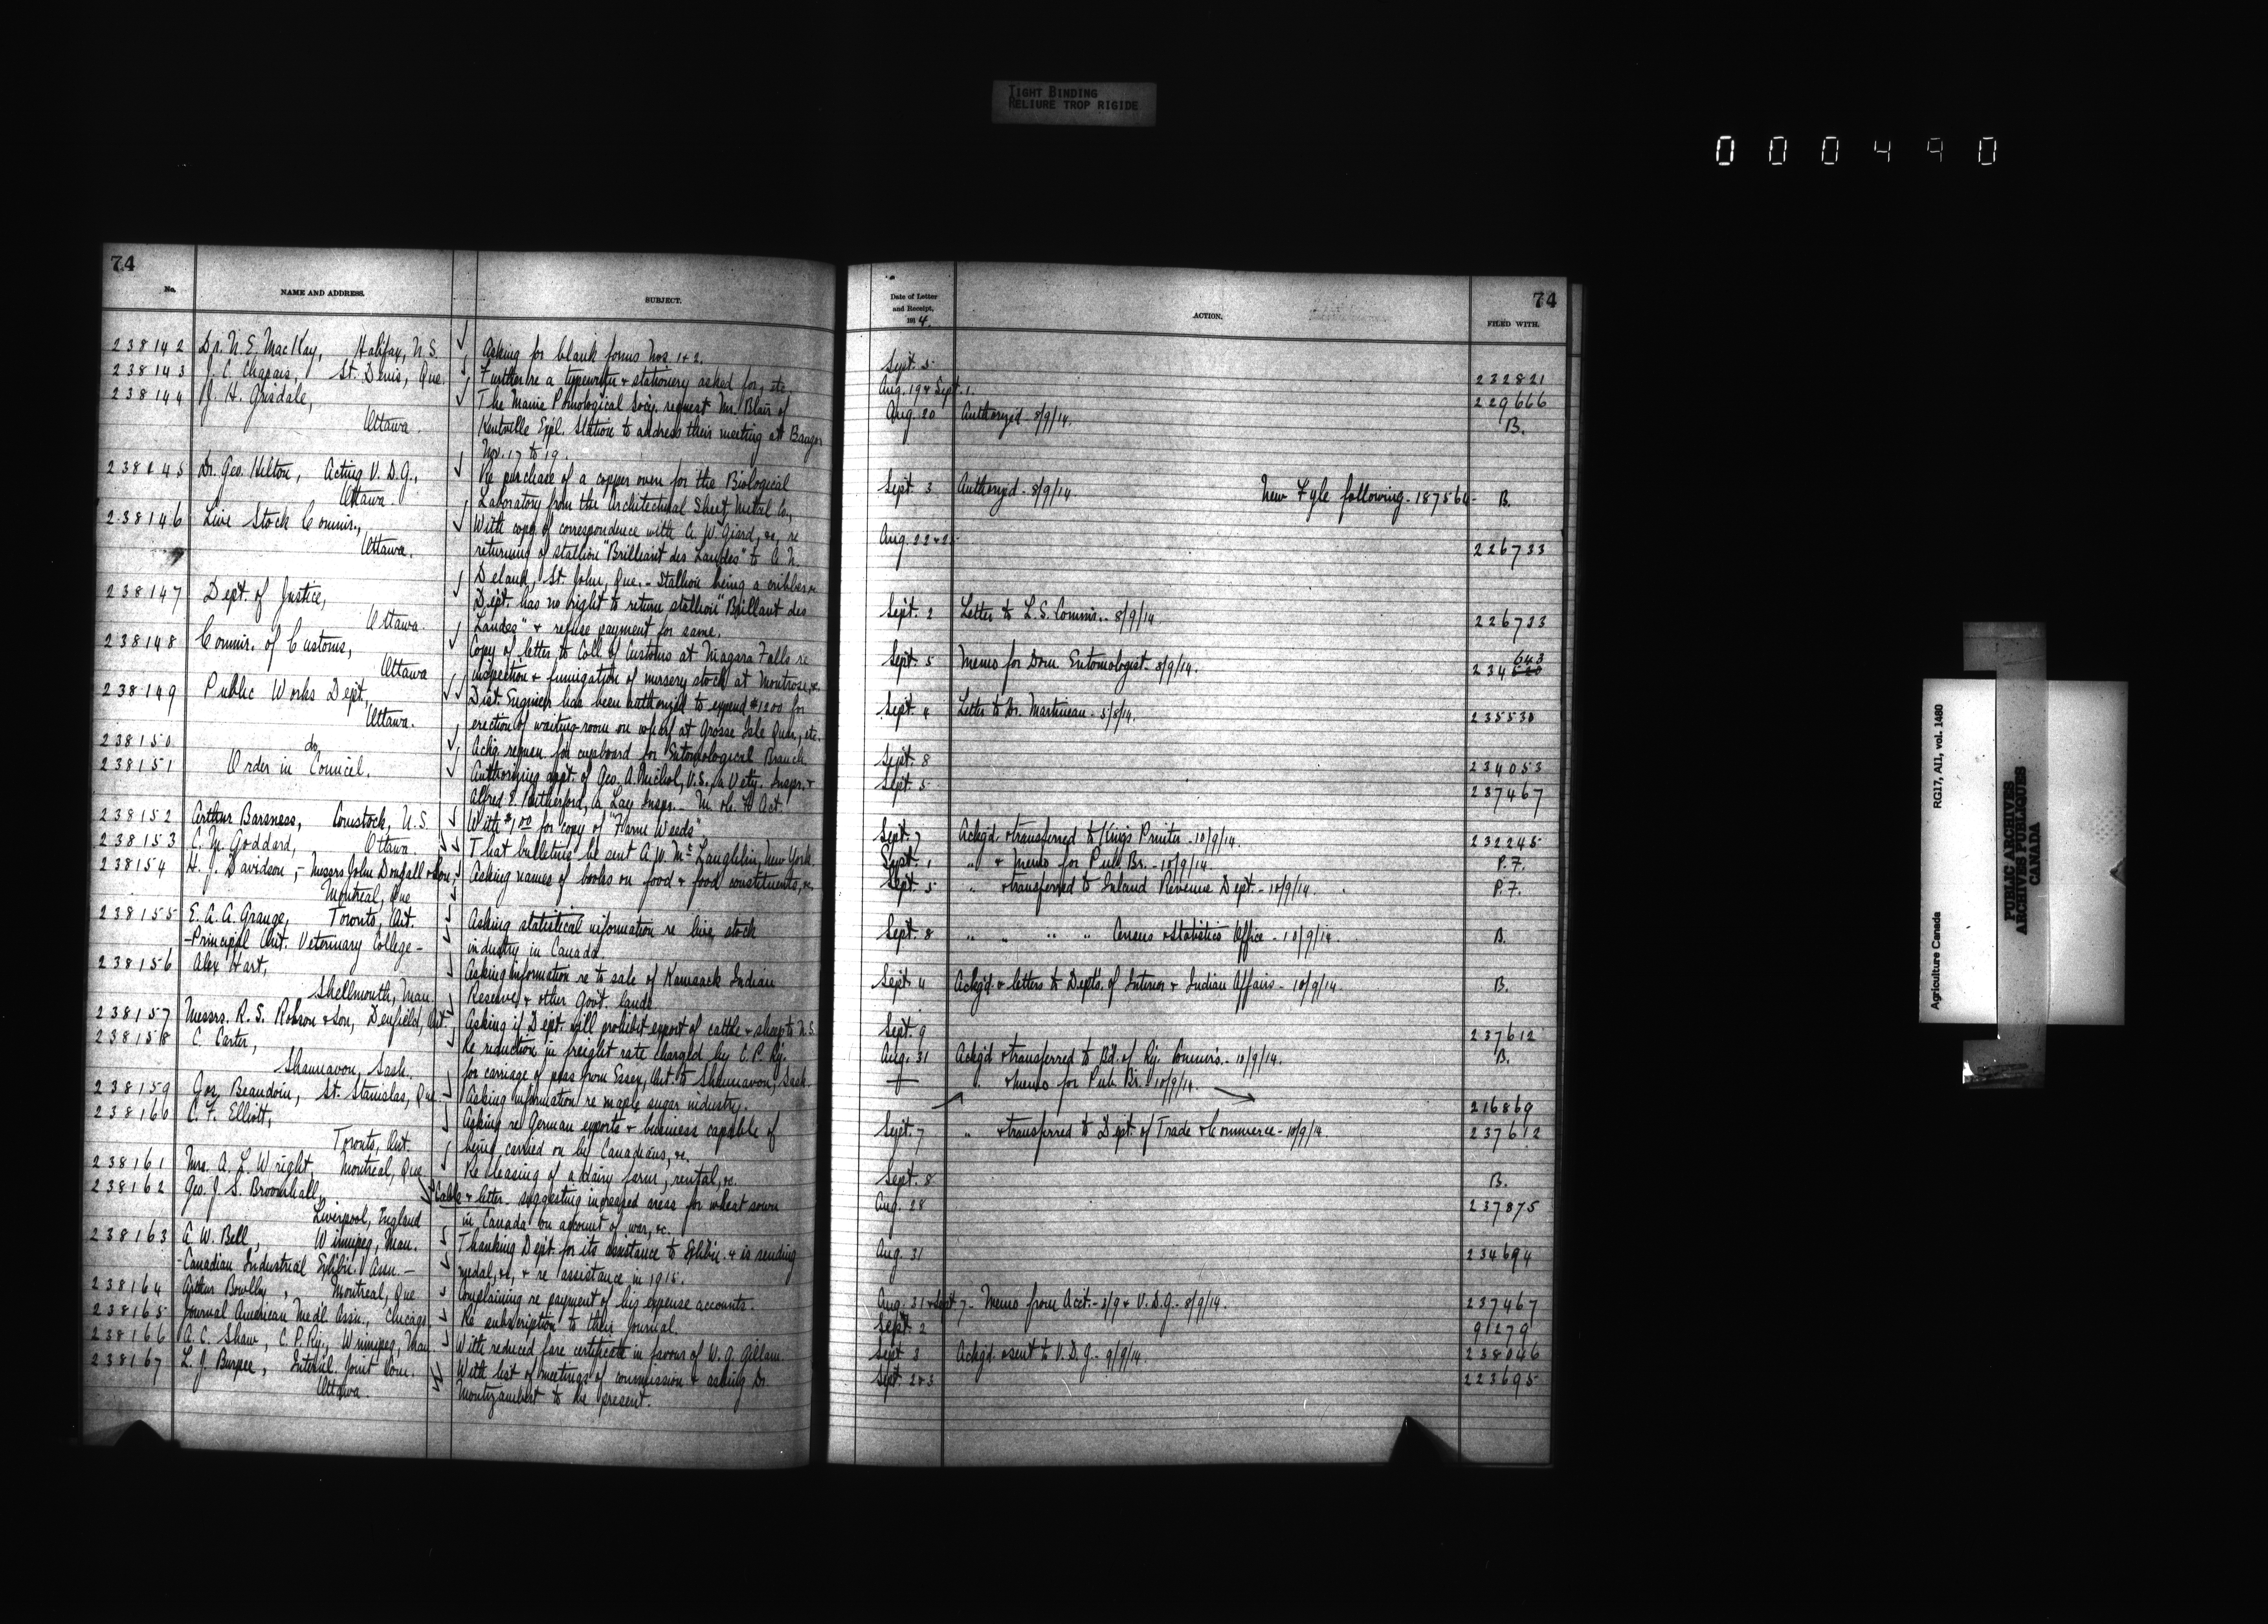 TIGHT BINDING
RELIURE TROP RIGIDE
000490
74
No.
NAME AND ADDRESS.
SUBJECT.
238142 Dr. N. E. MacKay, Halifax, N.S. Asking for blank forms Nos. 1 & 2.
238143 J. C. Chapais, St. Denis, Que. Further re a typewriter & stationery asked for, etc
238144 J. H. Grisdale, The Maine Pomological Socy. request Mr. Blair of
Ottawa. Kentville Expl. Station to address their meeting at Bangor
Nov. 17 to 19.
238145 Dr. Geo. Hilton, Acting V. D. G., Re purchase of a copper oven for the Biological
Ottawa. Laboratory from the Architectural Sheet Metal Co.,
238146 Live Stock Commr., With copy of correspondence with A. W. Giard, &c, re
Ottawa. returning of stallion "Brilliant des Landes" to A. N.
Deland, St. John, Que. - Stallion being a cribber
238147 Dept. of Justice, Dept. has no right to return stallion "Brillant des
Ottawa. Landes" & refuse payment for same.
238148 Commr. of Customs, Copy of letter to Coll. of Customs at Niagara Falls re
Ottawa inspection & fumigation of nursery stock at Montrose, &c
238149 Public Works Dept., Dist. Engineer has been authorized to expend $1200 for
Ottawa. erection of waiting-room on wharf at Grosse Isle Quar., etc.
238150 do Ackg. requon. for cupboard for Entomological Branch
238151 Order in Council. Authorizing appt. of Geo. A. Nichol, V.S., a Vety. Inspr. &
Alfred E. Rutherford, a Lay Inspr. - M. & Act.
238152 Arthur Barsness, Comstock, U.S. With $1.00 for copy of "Farm Weeds"
238153 C. M. Goddard, Ottawa. That bulletins be sent A. W. McLaughlin, New York.
238154 H. J. Davidson, - Messrs John Dougall & Son, Asking names of books on food & food constituents, &c
Montreal, Que
238155 E. A. A. Grange, Toronto, Ont. Asking statistical information re live stock
- Principal Ont. Veterinary College - industry in Canada.
238156 Alex Hart, Asking information re to sale of Kamsack Indian
Shellmouth, Man. Reserve & other Govt. lands
238157 Messrs. R. S. Robson & Son, Denfield, Ont. Asking if Dept. will prohibit export of cattle & sheep to U.S.
238158 C. Carter, Re reduction in freight rate charged by C. P. Ry.
Shaunavon, Sask. for carriage of peas from Essex, Ont. to Shaunavon, Sask.
238159 Geo. Beaudoin, St. Stanislas, Que. Asking information re maple sugar industry.
238160 C. F. Elliott, Asking re German exports & business capable of
Toronto, Ont. being carried on by Canadians, &c.
238161 Mrs. A. L. Wright, Montreal, Que Re leasing of a dairy farm, rental, &c.
238162 Geo. J. S. Broomhall, Cable & letter - suggesting increased areas for wheat sown
Liverpool, England in Canada on account of war, &c.
238163 A. W. Bell, Winnipeg, Man. Thanking Dept. for its assistance to Exhibn. & is sending
- Canadian Industrial Exhibn. Assn. - medal, &c, & re assistance in 1915.
238164 Arthur Bowlby, Montreal, Que Complaining re payment of his expense accounts.
238165 Journal American Medl Assn., Chicago Re subscription to their journal.
238166 A. C. Shaw, C. P. Ry., Winnipeg, Man With reduced fare certificate in favour of W. G. Gillam.
238167 L. J. Burpee, Internl. Joint Com. With list of meetings of commission & asking Dr.
Ottawa. Montizambert to be present.
74
Date of Letter and Receipt, 1914.
ACTION.
FILED WITH.
Sept. 5 232821
Aug. 19 & Sept. 1. 229666
Aug. 20 Authorized - 8/9/14. B.
Sept. 3 Authorized - 8/9/14 New Fyle following - 187564 - B.
Aug. 22 & 226733
Sept. 2 Letter to L. S. Commr. - 8/9/14. 226733
Sept. 5 Memo for Dom. Entomologist - 8/9/14. 234643
Sept. 4 Letter to Dr. Martineau - 5/8/14. 235530
Sept. 8 234053
Sept. 5 237467
Sept. 7 Ackgd. & transferred to King's Printer - 10/9/14. 232245
Sept. 1 " & memo for Pub. Br. - 10/9/14 P.F.
Sept. 5 " & transferred to Inland Revenue Dept. - 10/9/14. P.F.
Sept. 8 " " " " Census & Statistics Office - 10/9/14. B.
Sept. 4 Ackgd. & letters to Depts. of Interior & Indian Affairs - 10/9/14. B.
Sept. 9 237612
Aug. 31 Ackgd. & transferred to Bd. of Ry. Commrs. - 10/9/14. B.
" & memo for Pub. Br. 10/9/14. 216869
Sept. 7 " & transferred to Dept. of Trade & Commerce - 10/9/14. 237612
Sept. 8 B.
Aug. 28 237875
Aug. 31 234694
Aug. 31 & Sept 7 - Memo from Acct. - 3/9 & V. D. G. - 8/9/14. 237467
Sept. 2 91279
Sept. 3 Ackgd. & sent to V. D. G. - 9/9/14. 238046
Sept. 2 & 3 223695
Agriculture Canada RG17, AI1, vol. 1480
PUBLIC ARCHIVES
ARCHIVES PUBLIQUES
CANADA